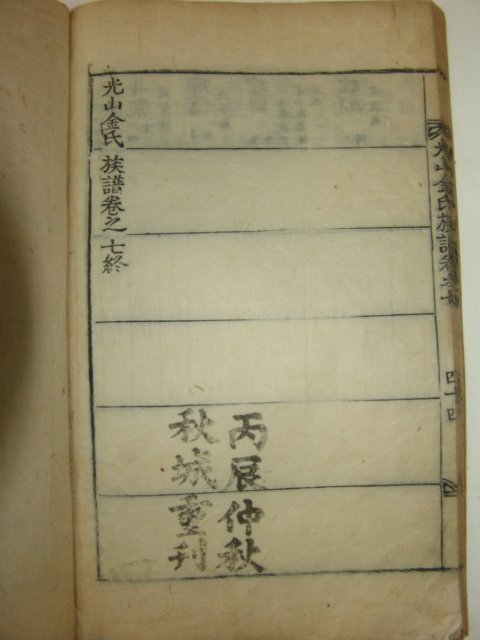 光山金氏族譜卷之七
四十四
丙辰仲秋
秋城重刊
光山金氏族譜卷之七終